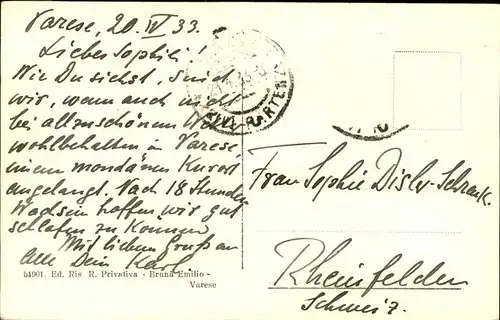 Varese, 20. IV 33.
Liebes Sophili!
Wie Du siehst, sind
wir, wenn auch nicht
bei allzuschönem Wetter
wohlbehalten in Varese,
einem mondänen Kurort
angelangt. Nach 18 Stunden
Wachsein hoffen wir gut
schlafen zu können
Mit lieben Gruß an
alle Dein Karl
54901. Ed. Ris. R. Privativa - Bruna Emilio -
Varese
Frau Sophie Disler-Schenk.
Rheinfelden
Schweiz.